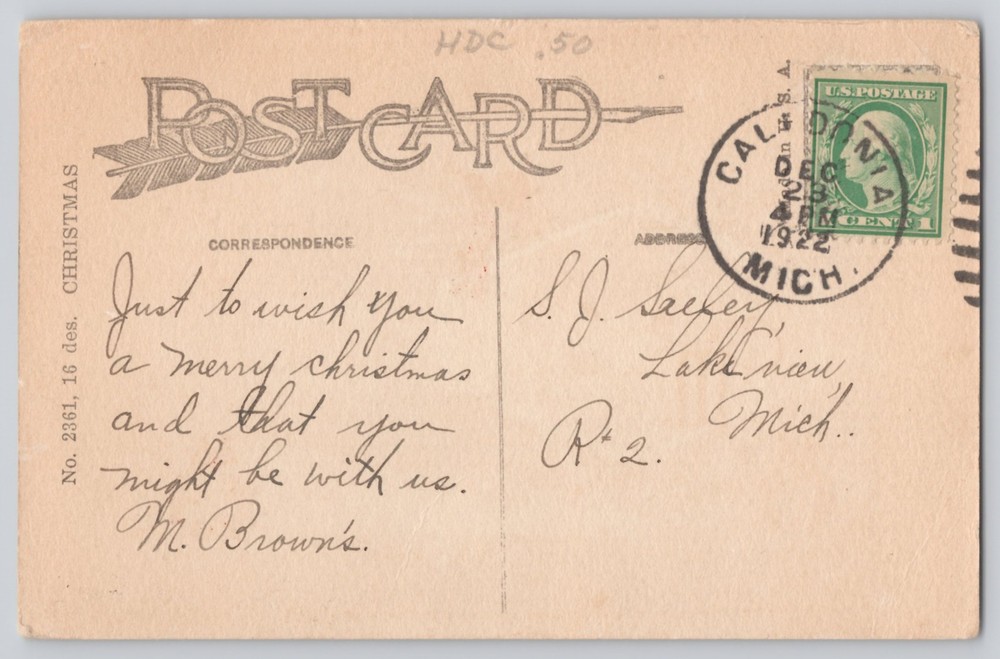 HDC .50
POST CARD
Made in U.S.A.
U.S. POSTAGE
CENTS 1
CALEDONIA
DEC
23
4 PM
1922
MICH.
No. 2361, 16 des. CHRISTMAS
CORRESPONDENCE
ADDRESS
Just to wish you
a merry christmas
and that you
might be with us.
M. Brown's.
S. J. Seeley,
Lake view,
Mich..
R# 2.